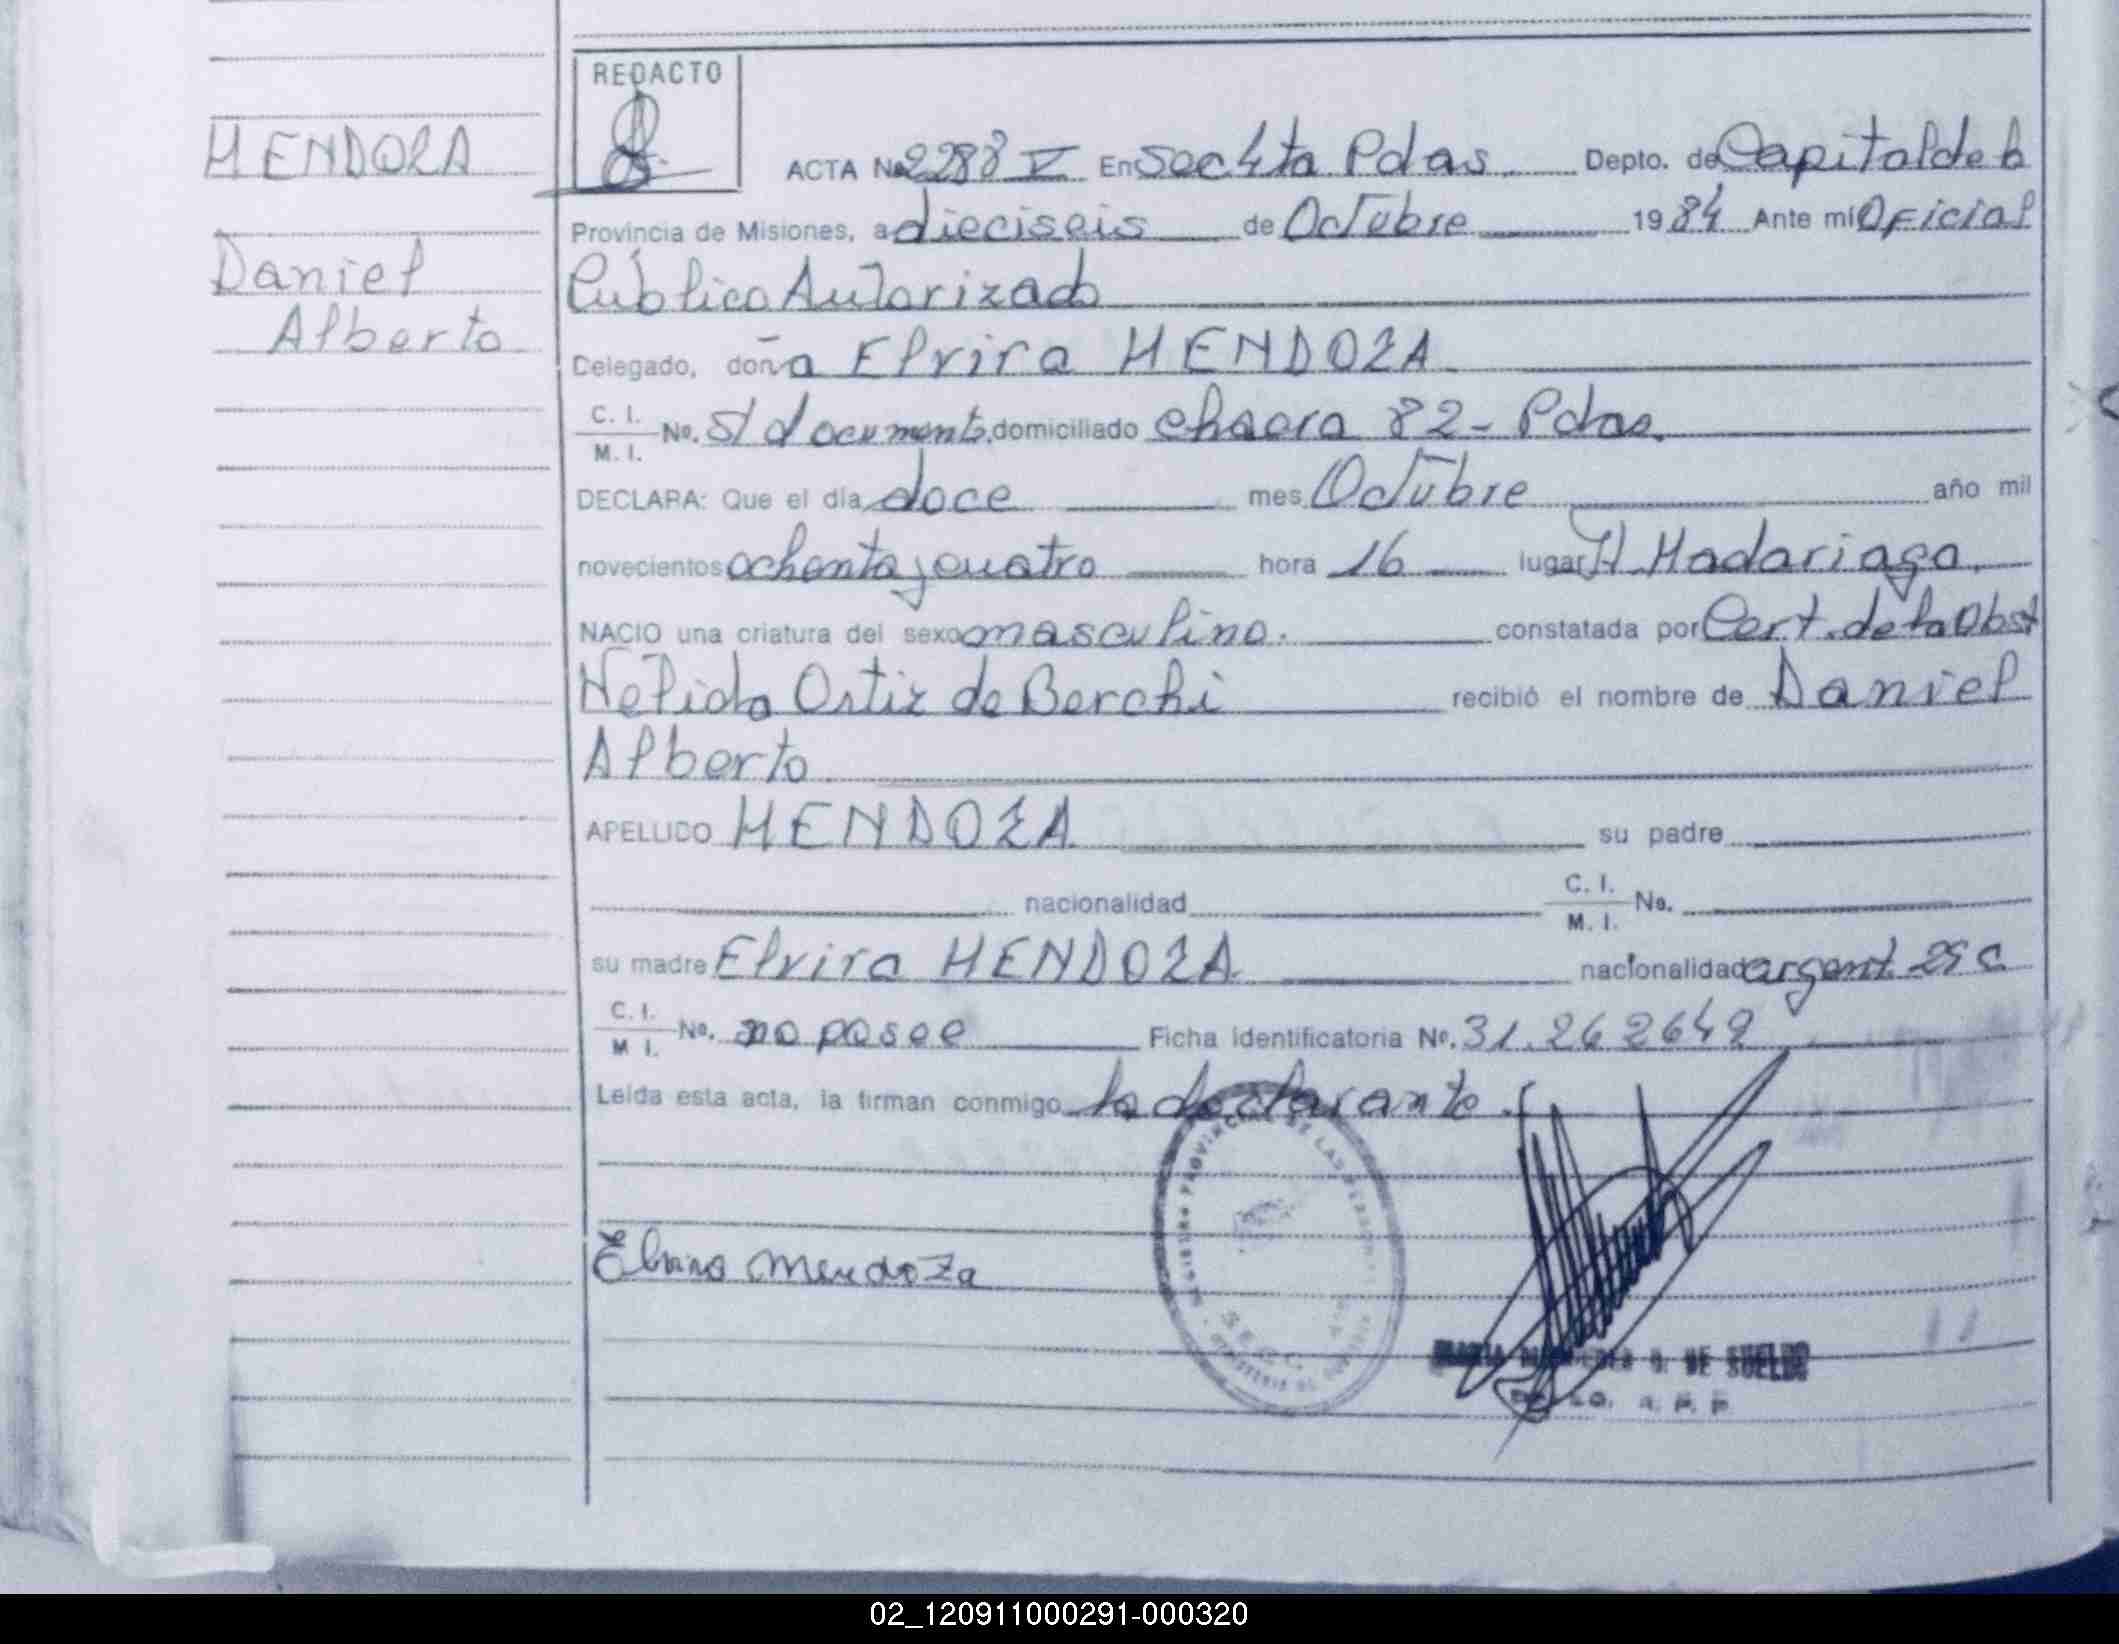 MENDOZA
Daniel
Alberto
REDACTO
ACTA No 2288 V En Sec 4ta Pdas. Depto. de Capital de la
Provincia de Misiones, a dieciseis de Octubre 1984 Ante mí Oficial
Público Autorizado
Delegado, doña Elvira MENDOZA
C. I.
M. I. No. s/documento, domiciliado chacra 82 - Pdas.
DECLARA: Que el día doce mes Octubre año mil
novecientos ochenta y cuatro hora 16 lugar H. Madariaga.
NACIO una criatura del sexo masculino. constatada por Cert. de la Obst
Nelida Ortiz de Berchi recibió el nombre de Daniel
Alberto
APELLIDO MENDOZA su padre
nacionalidad C. I.
M. I. No.
su madre Elvira MENDOZA nacionalidad argent. 25 a
C. I.
M I. No. no posee Ficha identificatoria No. 31.262642
Leída esta acta, la firman conmigo la declarante.
REGISTRO PROVINCIAL DE LAS PERSONAS
Elvira Mendoza
DE SUELDO
02_120911000291-000320